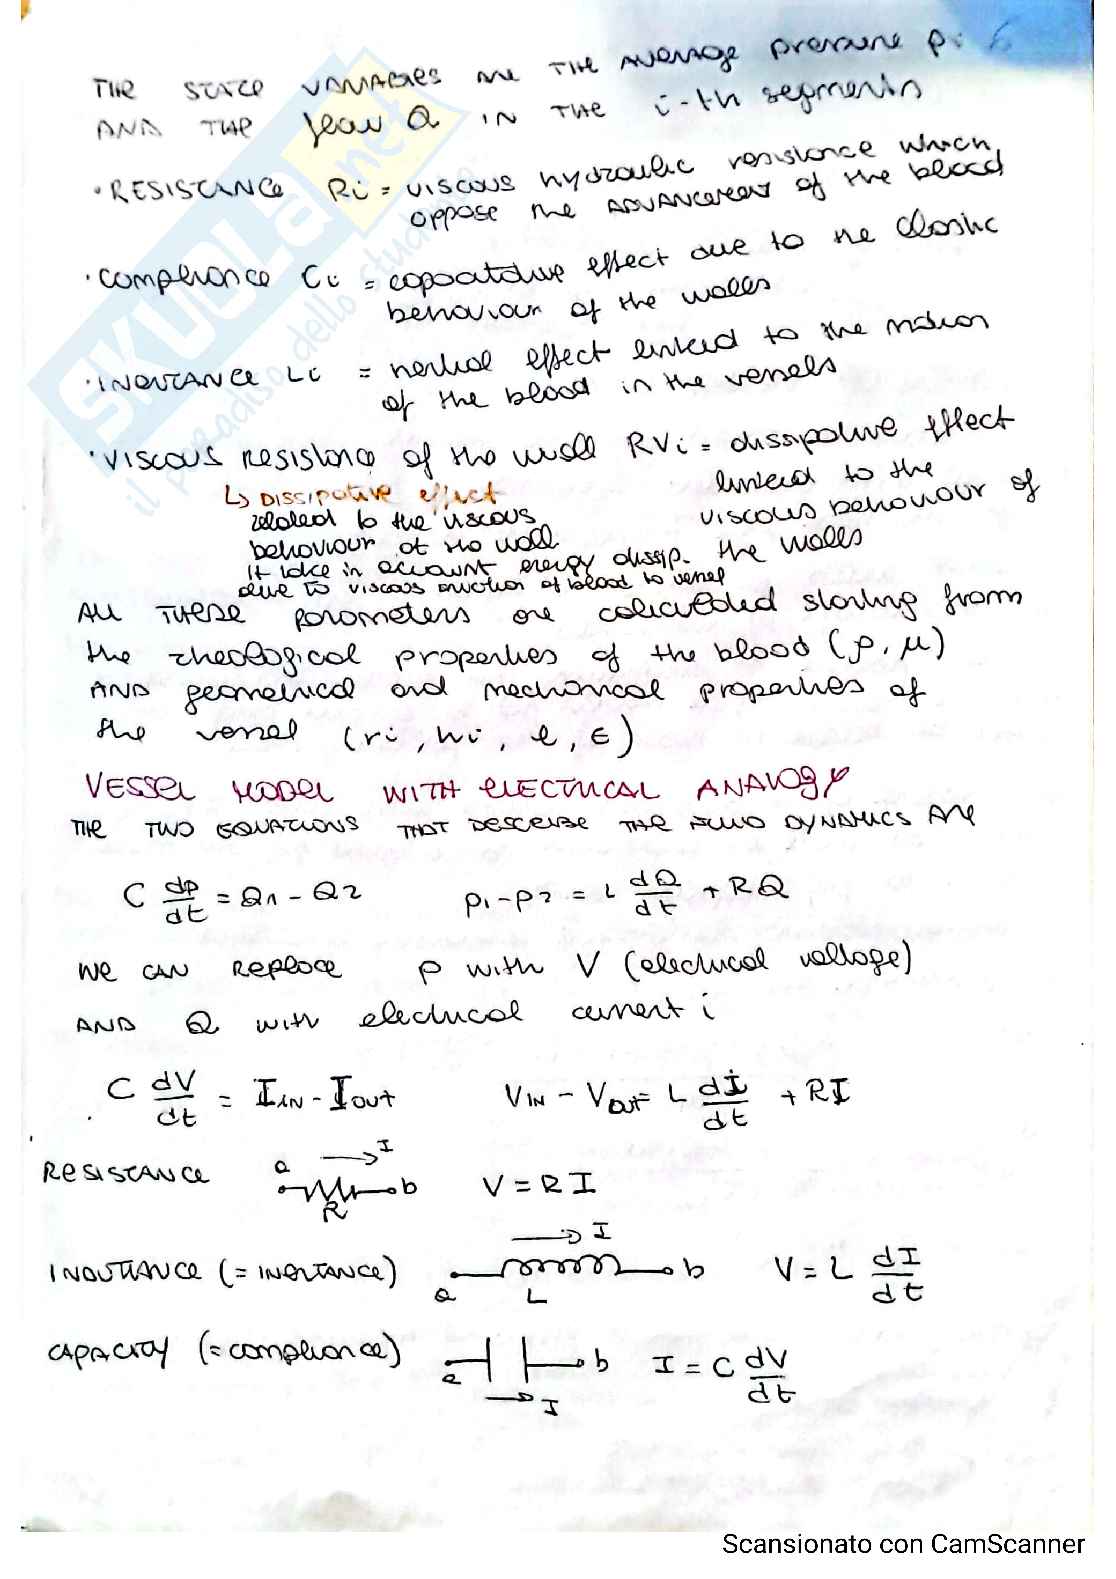 THE STATE VARIABLES ARE THE AVERAGE PRESSURE Pi
AND THE flow Q IN THE i-th segments
• RESISTANCE Ri = viscous hydraulic resistance which
oppose the ADVANCEMENT of the blood
• compliance Ci = capacitative effect due to the elastic
behaviour of the walls
• INERTANCE Li = inertial effect linked to the motion
of the blood in the vessels
• VISCOUS RESISTANCE of the wall RVi = dissipative effect
linked to the
viscous behaviour of
the walls
↳ DISSIPATIVE effect
related to the viscous
behaviour of the wall.
It take in account energy dissip.
due to viscous of blood to vessel
All THESE parameters are calculated starting from
the rheological properties of the blood (ρ, μ)
AND geometrical and mechanical properties of
the vessel (ri, hi, l, E)
VESSEL MODEL WITH ELECTRICAL ANALOGY
THE TWO EQUATIONS THAT DESCRIBE THE FLUID DYNAMICS ARE
C dp/dt = Q1 - Q2 p1 - p2 = L dQ/dt + RQ
WE CAN REPLACE p WITH V (electrical voltage)
AND Q WITH electrical current i
C dV/dt = I IN - I OUT V IN - V OUT = L dI/dt + RI
RESISTANCE a I R b V = RI
INDUCTANCE (= INERTANCE) a I L b V = L dI/dt
CAPACITY (= compliance) a I b I = C dV/dt
SKUOLA.net
il paradiso dello studente
Scansionato con CamScanner